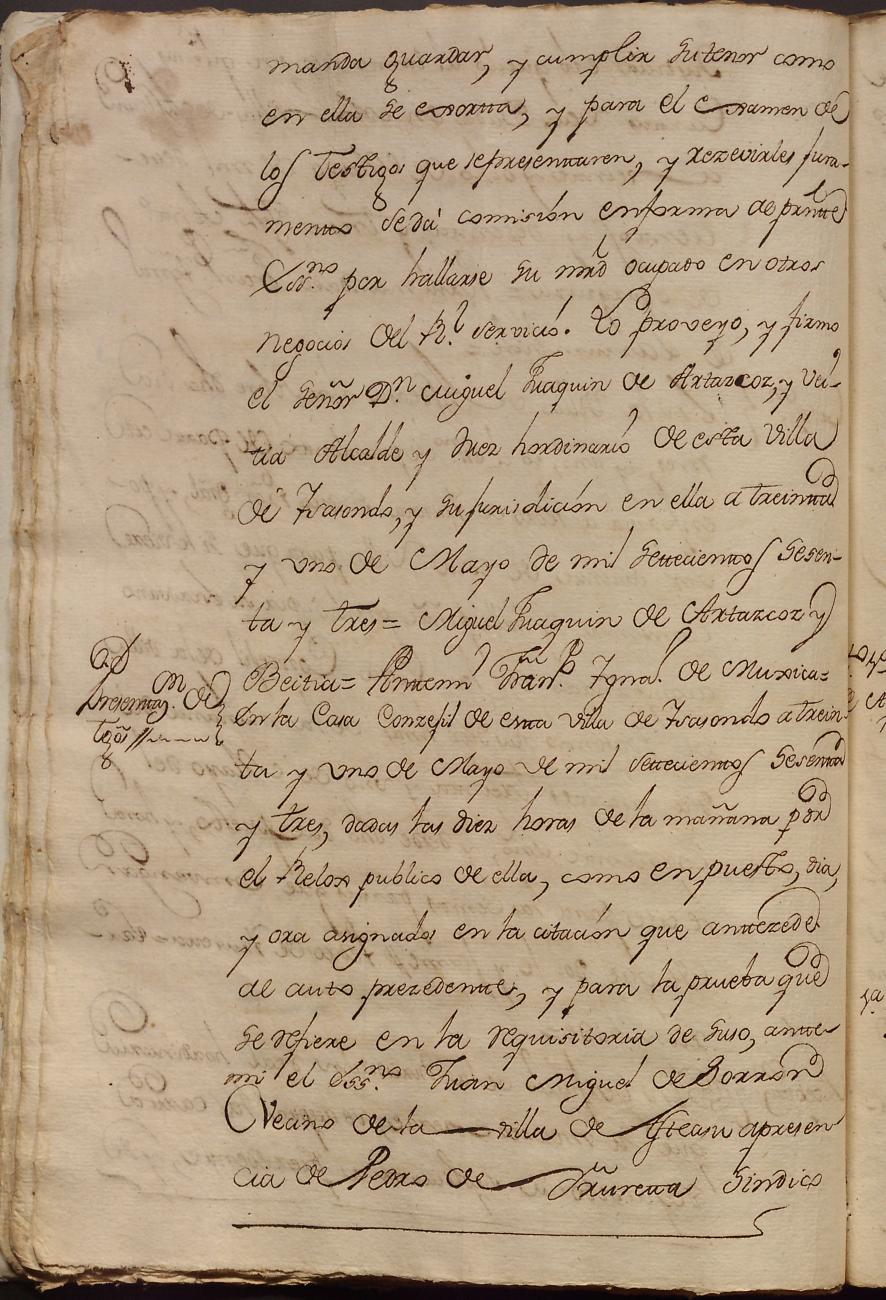 manda guardar, y cumplir su tenor como
en ella se exortta, y para el examen de
los testigos que se presenttaren, y rezevirles jura-
mentto se dá comisión en forma al presstte
Essno por hallarse su mrd ocupado en otros
negocios del Rl servicio. Lo proveyo, y firmo
el señor Dn Miguel Juaquin de Artazcoz, y Vei-
tia Alcalde y Juez hordinario de esta Villa
de Trasondo, y su jurisdición en ella a treinta
y uno de Mayo de mil settecienttos sesen-
ta y tres = Miguel Juaquin de Artazcoz y
Beitia = Anttemi Franco Ignao de Muxica =
Presenttazon de
tgos //
En la Casa Conzejil de estta villa de Trasondo a trein-
ta y uno de Mayo de mil settecienttos sesentta
y tres, dadas las diez horas de la mañana por
el Relox publico de ella, como en puesto, dia,
y ora asignados en la citación que anttezede
al auto prezedentte, y para la prueba que
se refiere en la requisitoria de suso, antte-
mi el Essno Juan Miguel de Borror
Vecino de la villa de Asteasu a presen
cia de Pedro de Yruretta Sindico